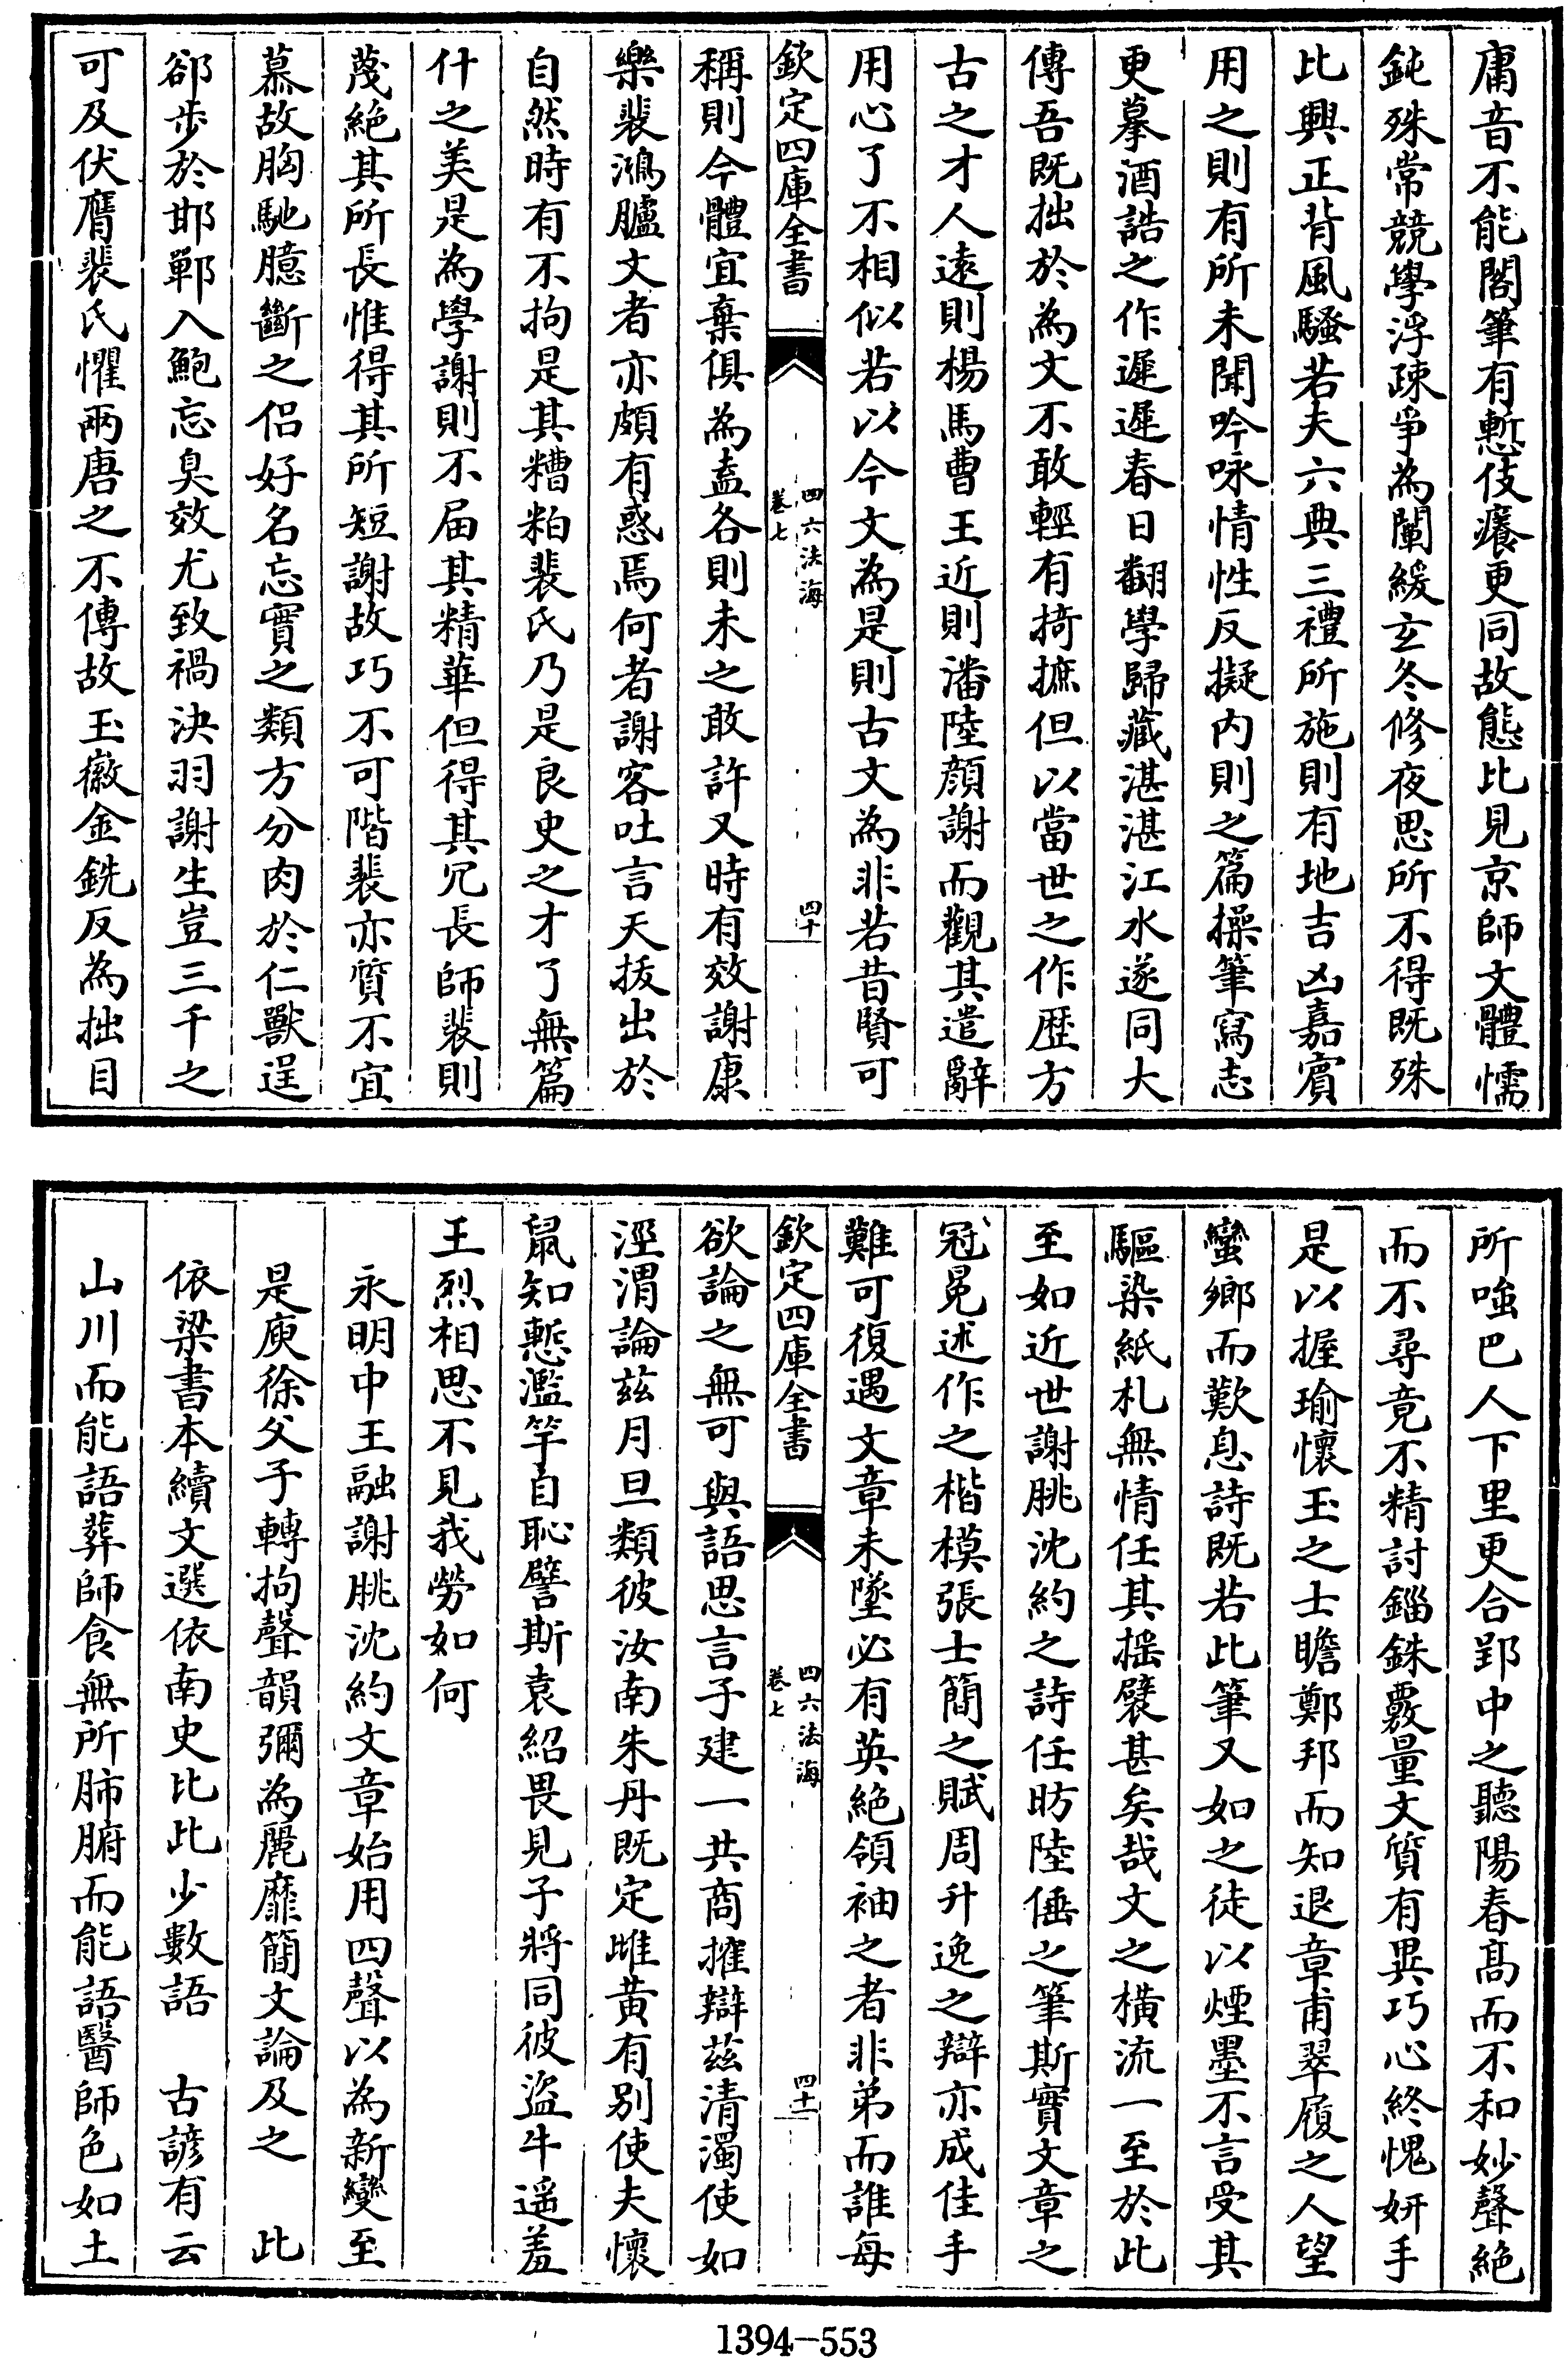 庸音不能閣筆有慙伎癢更同故態比見京師文體懦
鈍殊常競學浮疎爭為闡緩玄冬修夜思所不得既殊
比興正背風騷若夫六典三禮所施則有地吉凶嘉賓
用之則有所未聞吟咏情性反擬内則之篇操筆寫志
更摹酒誥之作遲遲春日翻學歸藏湛湛江水遂同大
傳吾既拙於為文不敢輕有掎摭但以當世之作歴方
古之才人遠則楊馬曹王近則潘陸顔謝而觀其遣辭
用心了不相似若以今文為是則古文為非若昔賢可
欽定四庫全書
四六法海
卷七
四十
稱則今體宜棄俱為盍各則未之敢許又時有效謝康
樂裴鴻臚文者亦頗有惑焉何者謝客吐言天拔出於
自然時有不拘是其糟粕裴氏乃是良史之才了無篇
什之美是為學謝則不届其精華但得其冗長師裴則
蔑絶其所長惟得其所短謝故巧不可階裴亦質不宜
慕故胸馳臆斷之侣好名忘實之類方分肉於仁獸逞
郤步於邯鄲入鮑忘臭效尤致禍決羽謝生豈三千之
可及伏膺裴氏懼兩唐之不傳故玉徽金銑反為拙目
所嗤巴人下里更合郢中之聽陽春髙而不和妙聲絶
而不尋竟不精討錙銖覈量文質有異巧心終愧妍手
是以握瑜懷玉之士瞻鄭邦而知退章甫翠履之人望
蠻鄉而歎息詩既若此筆又如之徒以煙墨不言受其
驅染紙札無情任其揺襞甚矣哉文之橫流一至於此
至如近世謝朓沈約之詩任昉陸倕之筆斯實文章之
冠冕述作之楷模張士簡之賦周升逸之辯亦成佳手
難可復遇文章未墜必有英絶領袖之者非弟而誰每
欽定四庫全書
四六法海
卷七
四十一
欲論之無可與語思言子建一共商搉辯兹清濁使如
涇渭論兹月旦類彼汝南朱丹既定雌黄有别使夫懷
鼠知慙濫竽自恥譬斯袁紹畏見子將同彼盗牛遥羞
王烈相思不見我勞如何
永明中王融謝朓沈約文章始用四聲以為新變至
是庾徐父子轉拘聲韻彌為麗靡簡文論及之　此
依梁書本續文選依南史比此少數語　古諺有云
山川而能語葬師食無所肺腑而能語醫師色如土
1394-553